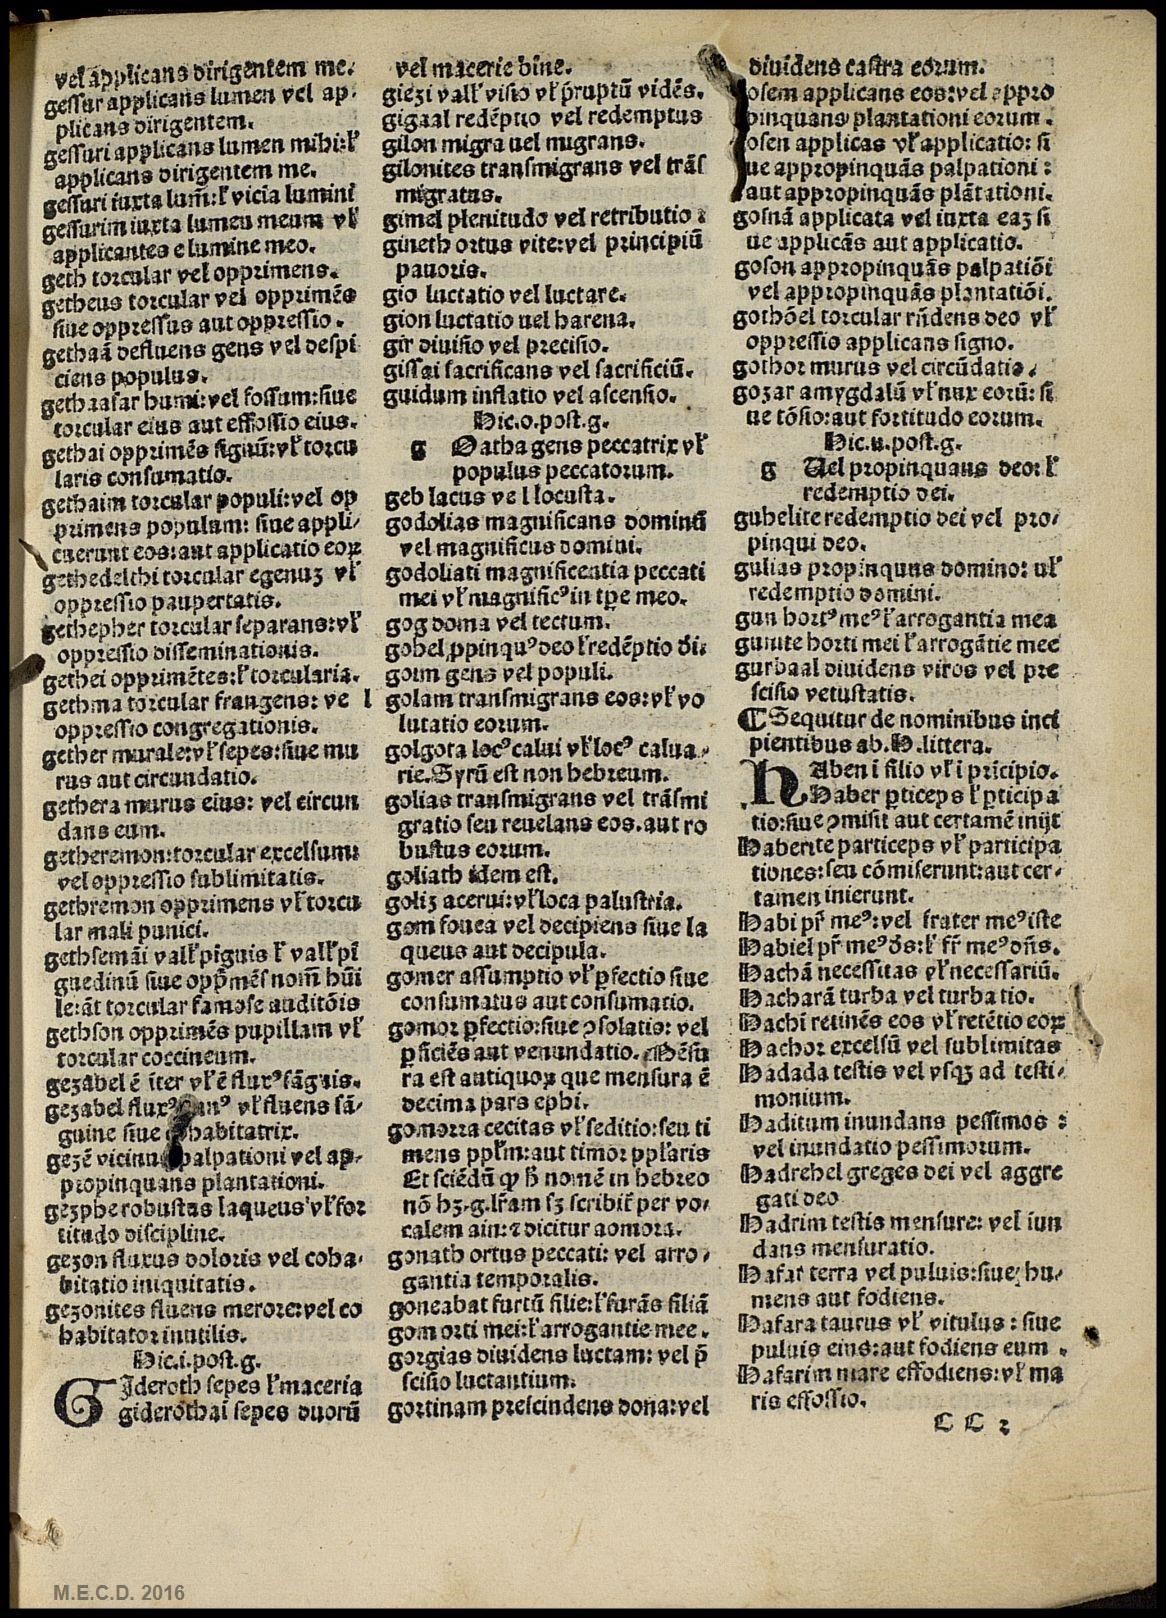 vel applicans dirigentem me.
gessur applicans lumen vel ap-
plicans dirigentem.
gessuri applicans lumen mihi: ł
applicans dirigentem me.
gessuri iuxta lum̄: ł vicia lumini
gessurim iuxta lumeu meum vł
applicantes e lumine meo.
geth torcular vel opprimens.
getheus torcular vel opprimēs
siue oppressus aut oppressio.
gethaā defluens gens vel despi
ciens populus.
gethaasar humi: vel fossum: siue
torcular eius aut effossio eius.
gethai opprimēs signū: vł torcu
laris consumatio.
gethaim torcular populi: vel op
primens populum: siue appli-
cuerunt eos: aut applicatio eoꝝ
gethedelthi torcular egenuꝫ vł
oppressio paupertatis.
gethepher torcular separans: vł
oppressio disseminationis.
gethei opprimētes: ł torcularia.
gethma torcular frangens: ve l
oppressio congregationis.
gether murale: vł sepes: siue mu
rus aut circundatio.
gethera murus eius: vel circun
dans eum.
getheremon: torcular excelsum:
vel oppressio sublimitatis.
gethremon opprimens vł torcu
lar mali punici.
gethsemāi vallꝭ piguis ł vallꝭ pī
guedinū siue opp̄mēs nom̄ hūi
le: āt torcular famose auditōis
gethson opprimēs pupillam vł
torcular coccineum.
gezabel ē iter vł ē fluxꝰ sāguis.
gezabel fluxꝰ vł fluens sā-
guine siue habitatrix.
gezē vicinu palpationi vel ap-
propinquans plantationi.
gezphe robustus laqueus vł for
titudo discipline.
gezon fluxus doloris vel coha-
bitatio iniquitatis.
gezonites fluens merore: vel co
habitator inutilis.
Hic.i.post.g.
Gideroth sepes ł maceria
giderothai sepes duorū
vel macerie bine.
giezi vallꝭ visio vł p̄ruptū vidēs.
gigaal redēptio vel redemptus
gilon migra uel migrans.
gilonites transmigrans vel trās
migratus.
gimel plenitudo vel retributio:
gineth ortus vite: vel principiū
pauoris.
gio luctatio vel luctare.
gion luctatio uel harena.
gir diuisio vel precisio.
gissai sacrificans vel sacrificiū.
guidum inflatio vel ascensio.
Hic.o.post.g.
g Oatha gens peccatrix vł
populus peccatorum.
geb lacus ve l locusta.
godolias magnificans dominū
vel magnificus domini.
godoliati magnificentia peccati
mei vł magnificꝰ in tp̄e meo.
gog doma vel tectum.
gohel ꝓpinquꝰ deo ł redēptio d̄i.
goim gens vel populi.
golam transmigrans eos: vł vo
lutatio eorum.
golgota locꝰ calui vł locꝰ calua-
rie. Syrū est non hebreum.
golias transmigrans vel trāsmi
gratio seu reuelans eos. aut ro
bustus eorum.
goliath idem est.
goliz acerui: vł loca palustria.
gom fouea vel decipiens siue la
queus aut decipula.
gomer assumptio vł ꝑfectio siue
consumatus aut consumatio.
gomor ꝑfectio: siue ꝯsolatio: vel
ꝑficiēs aut venundatio. Mēsu
ra est antiquoꝝ que mensura ē
decima pars ephi.
gomorra cecitas vł seditio: seu ti
mens ppłm: aut timor ppłaris
Et sciēdū ꝙ h̄ nomē in hebreo
nō hꝫ.g.lr̄am sꝫ scribit̄ per vo-
calem ain: ⁊ dicitur aomora.
gonath ortus peccati: vel arro-
gantia temporalis.
goneabat furtū filie: ł furās filiā
gom orti mei: ł arrogantie mee.
gorgias diuidens luctam: vel p̄
scisio luctantium.
gortinam prescindens dona: vel
diuidens castra eorum.
osem applicans eos: vel appro
pinquans plantationi eorum.
osen applicas vł applicatio: si
ue appropinquās palpationi:
aut appropinquās plātationi.
gosnā applicata vel iuxta eaꝫ si
ue applicās aut applicatio.
goson appropinquās palpatiōi
vel appropinquās plantatiōi.
gothōel torcular rn̄dens deo vł
oppressio applicans signo.
gothor murus vel circūdatio.
gozar amygdalū vł nux eorū: si
ue tōsio: aut fortitudo eorum.
Hic.u.post.g.
g Uel propinquans deo: ł
redemptio dei.
guhelite redemptio dei vel pro-
pinqui deo.
gulias propinquns domino: uł
redemptio domini.
gun hortꝰ meꝰ ł arrogantia mea
guiute horti mei ł arrogātie mee
gurbaal diuidens viros vel pre
scisio vetustatis.
¶ Sequitur de nominibus inci
pientibus ab.H.littera.
HAben i filio vł i pricipio.
Haber ꝑticeps ł ꝑticipa
tio: siue ꝓmisit aut certamē inijt
Haberite particeps vł participa
tiones: seu cōmiserunt: aut cer-
tamen inierunt.
Habi pr̄ meꝰ: vel frater meꝰ iste
Habiel pr̄ meꝰ d̄s: ł fr̄ meꝰ dn̄s.
Hachā necessitas vł necessariū.
Hacharā turba vel turbatio.
Hachi retinēs eos vł retētio eoꝝ
Hachor excelsū vel sublimitas
Hadada testis vel vsqꝫ ad testi-
monium.
Haditum inundans pessimos:
vel inundatio pessimorum.
Hadrehel greges dei vel aggre
gati deo
Hadrim testis mensure: vel iun
dans mensuratio.
Hafar terra vel puluis: siue hu-
mens aut fodiens.
Hafara taurus vł vitulus: siue
puluis eius: aut fodiens eum.
Hafarim mare effodiens: vł ma
ris effossio.
CC 2
M.E.C.D. 2016